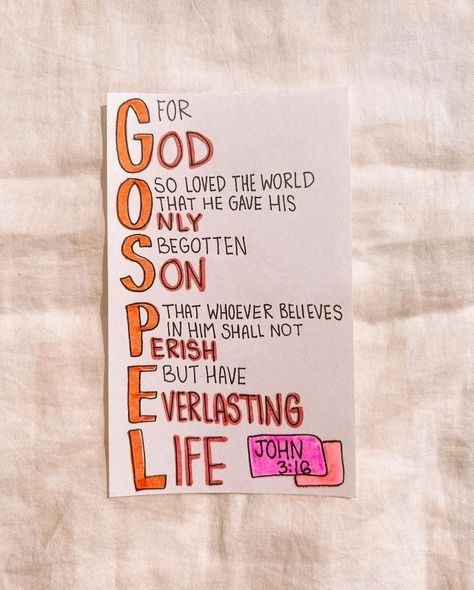 FOR
GOD
SO LOVED THE WORLD
THAT HE GAVE HIS
ONLY
BEGOTTEN
SON
THAT WHOEVER BELIEVES
IN HIM SHALL NOT
PERISH
BUT HAVE
EVERLASTING
LIFE
JOHN
3:16